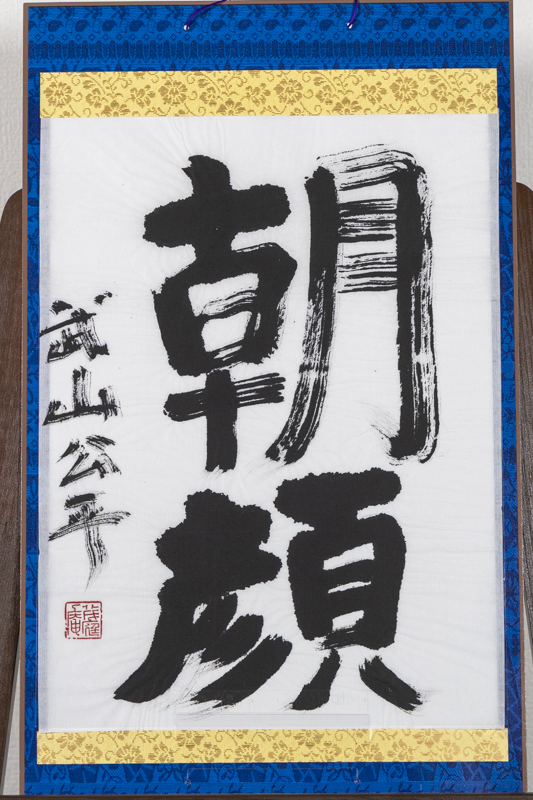 朝顔
武山公平